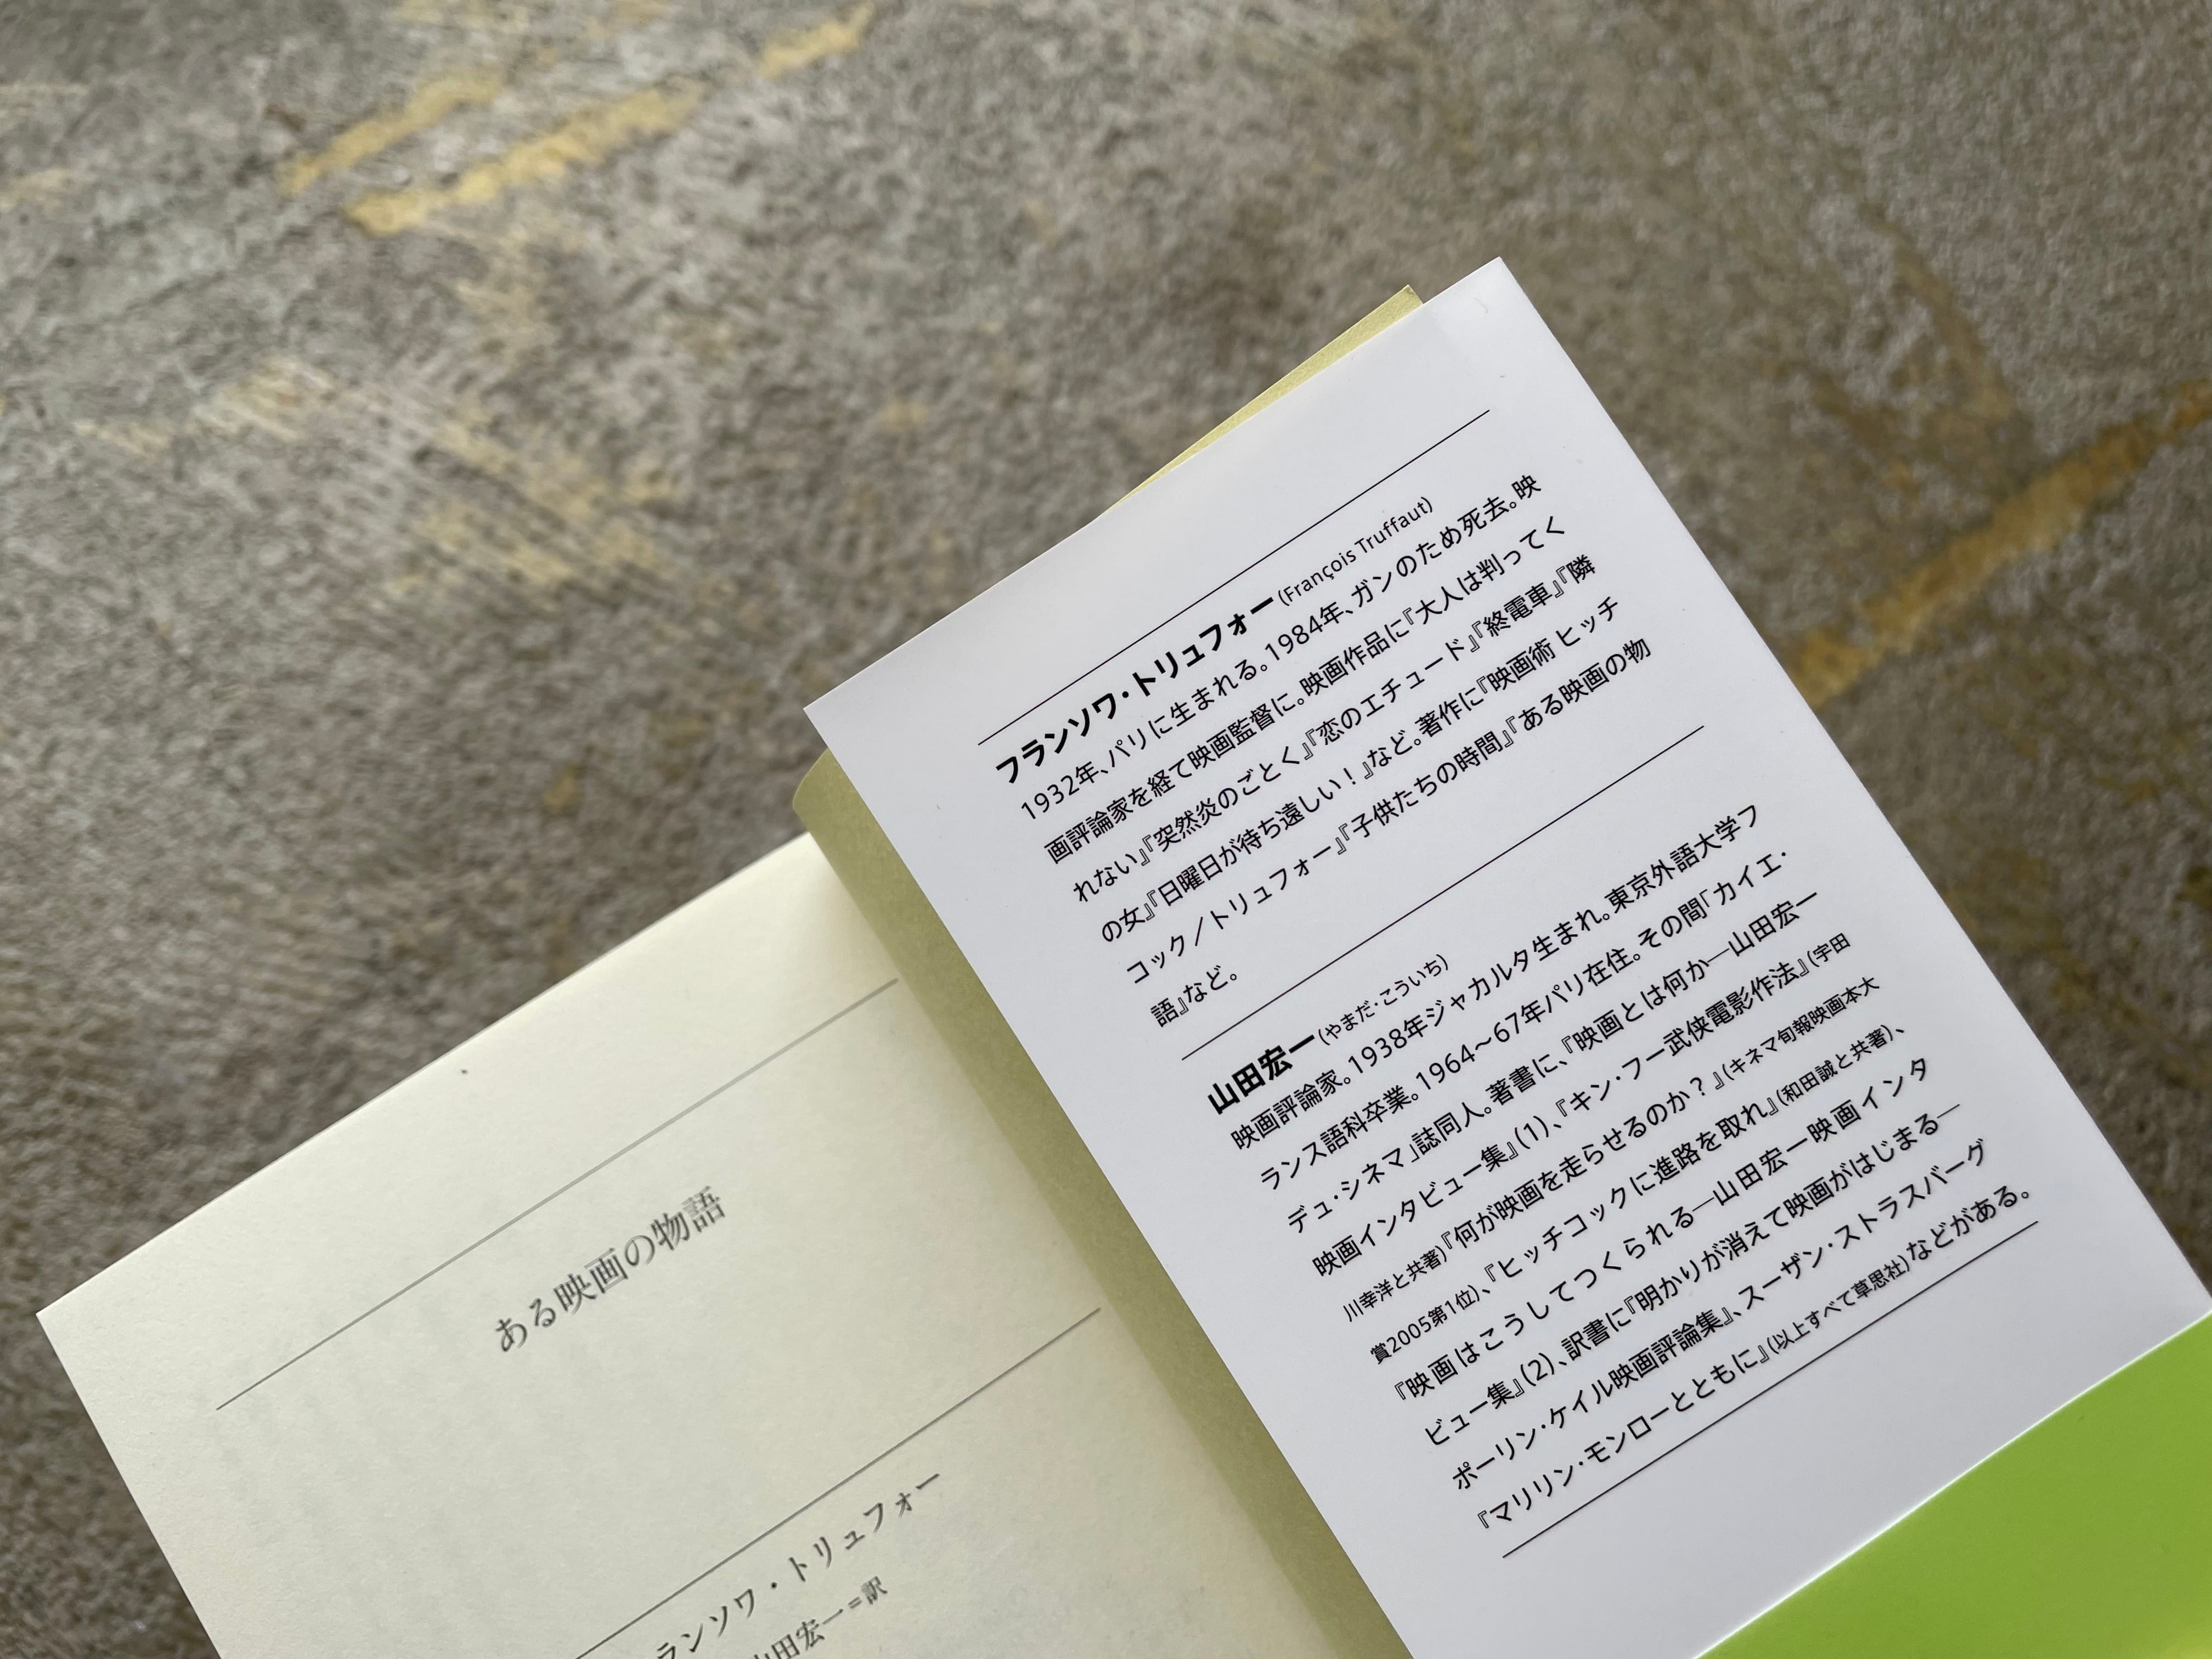 ある映画の物語
ランソワ・トリュフォー
山田宏一=訳
フランソワ・トリュフォー(François Truffaut)
1932年、パリに生まれる。1984年、ガンのため死去。映
画評論家を経て映画監督に。映画作品に『大人は判ってく
れない』『突然炎のごとく』『恋のエチュード』『終電車』『隣
の女』『日曜日が待ち遠しい!』など。著作に『映画術 ヒッチ
コック/トリュフォー』『子供たちの時間』『ある映画の物
語』など。
山田宏一(やまだ・こういち)
映画評論家。1938年ジャカルタ生まれ。東京外語大学フ
ランス語科卒業。1964〜67年パリ在住。その間「カイエ・
デュ・シネマ」誌同人。著書に、『映画とは何か―山田宏一
映画インタビュー集』(1)、『キン・フー武侠電影作法』(宇田
川幸洋と共著)『何が映画を走らせるのか?』(キネマ旬報映画本大
賞2005第1位)、『ヒッチコックに進路を取れ』(和田誠と共著)、
『映画はこうしてつくられる―山田宏一映画インタ
ビュー集』(2)、訳書に『明かりが消えて映画がはじまる―
ポーリン・ケイル映画評論集』、スーザン・ストラスバーグ
『マリリン・モンローとともに』(以上すべて草思社)などがある。